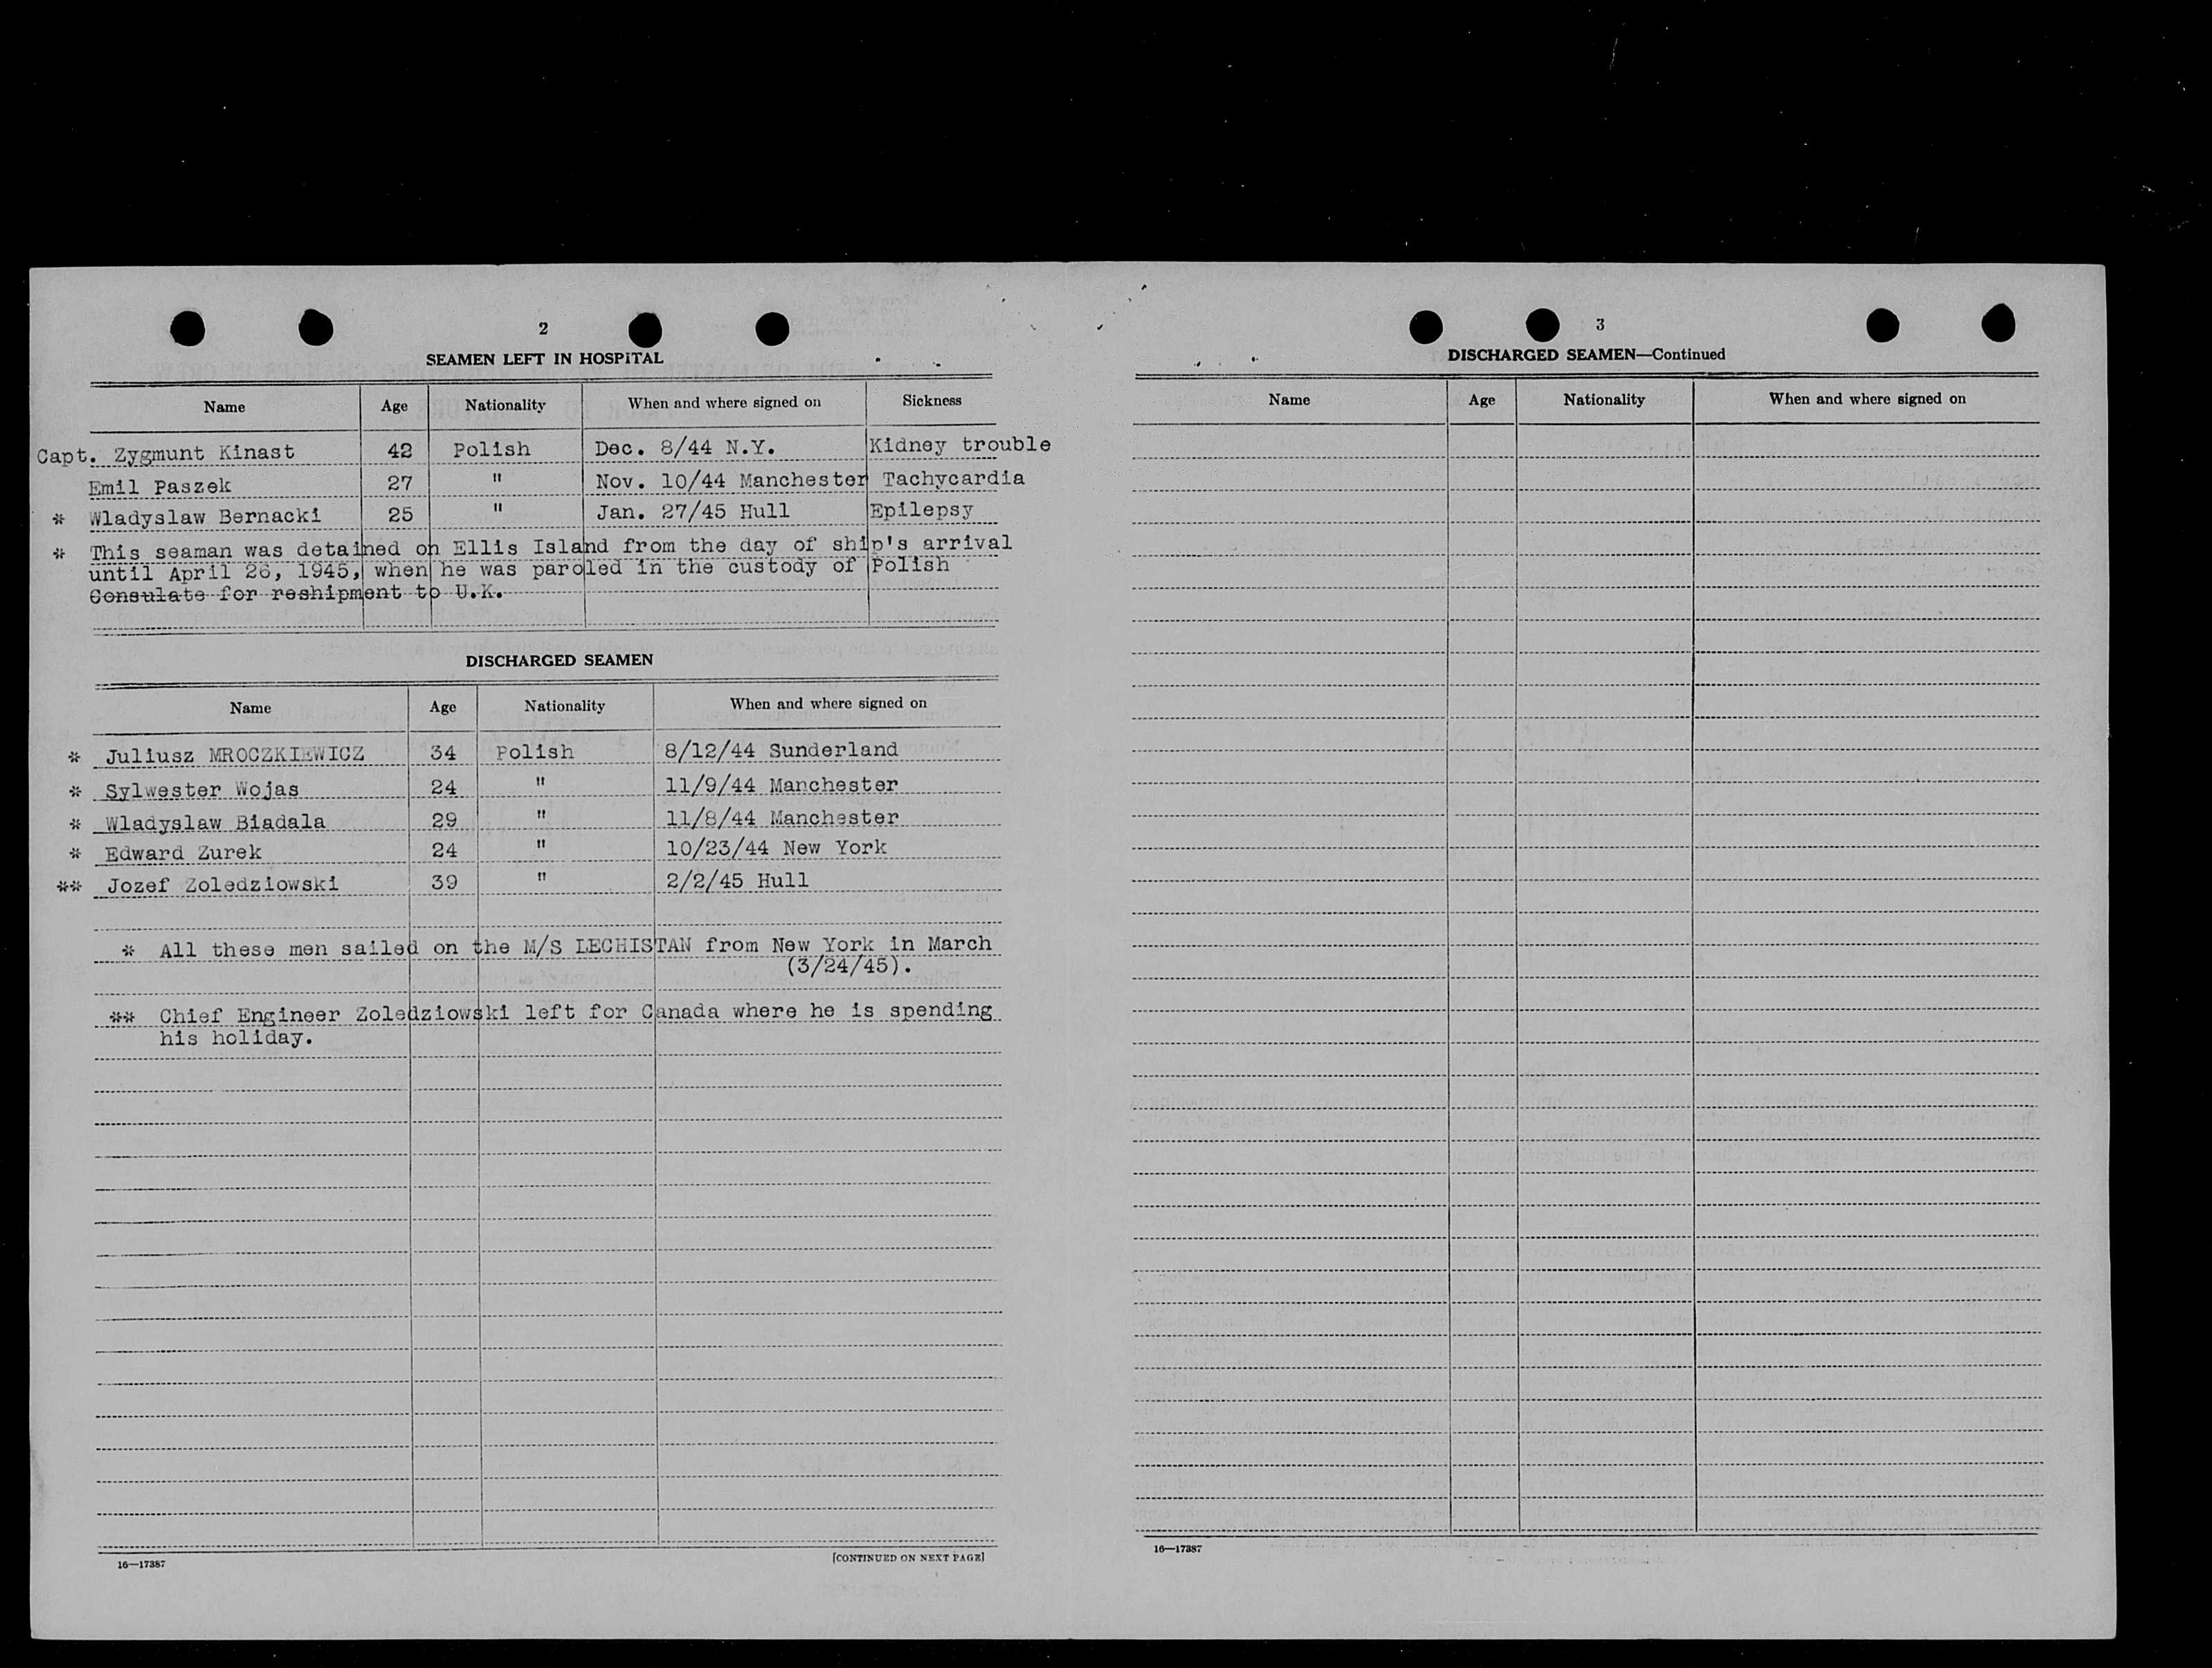 2
SEAMEN LEFT IN HOSPITAL
Name Age Nationality When and where signed on Sickness
Capt. Zygmunt Kinast 42 Polish Dec. 8/44 N.Y. Kidney trouble
Emil Paszek 27 " Nov. 10/44 Manchester Tachycardia
* Wladyslaw Bernacki 25 " Jan. 27/45 Hull Epilepsy
* This seaman was detained on Ellis Island from the day of ship's arrival
until April 26, 1945, when he was paroled in the custody of Polish
Consulate for reshipment to U.K.
DISCHARGED SEAMEN
Name Age Nationality When and where signed on
* Juliusz MROCZKIEWICZ 34 Polish 8/12/44 Sunderland
* Sylwester Wojas 24 " 11/9/44 Manchester
* Wladyslaw Biadala 29 " 11/8/44 Manchester
* Edward Zurek 24 " 10/23/44 New York
** Jozef Zoledziowski 39 " 2/2/45 Hull
* All these men sailed on the M/S LECHISTAN from New York in March
(3/24/45).
** Chief Engineer Zoledziowski left for Canada where he is spending
his holiday.
16—17387 [CONTINUED ON NEXT PAGE]
3
DISCHARGED SEAMEN—Continued
Name Age Nationality When and where signed on
16—17387